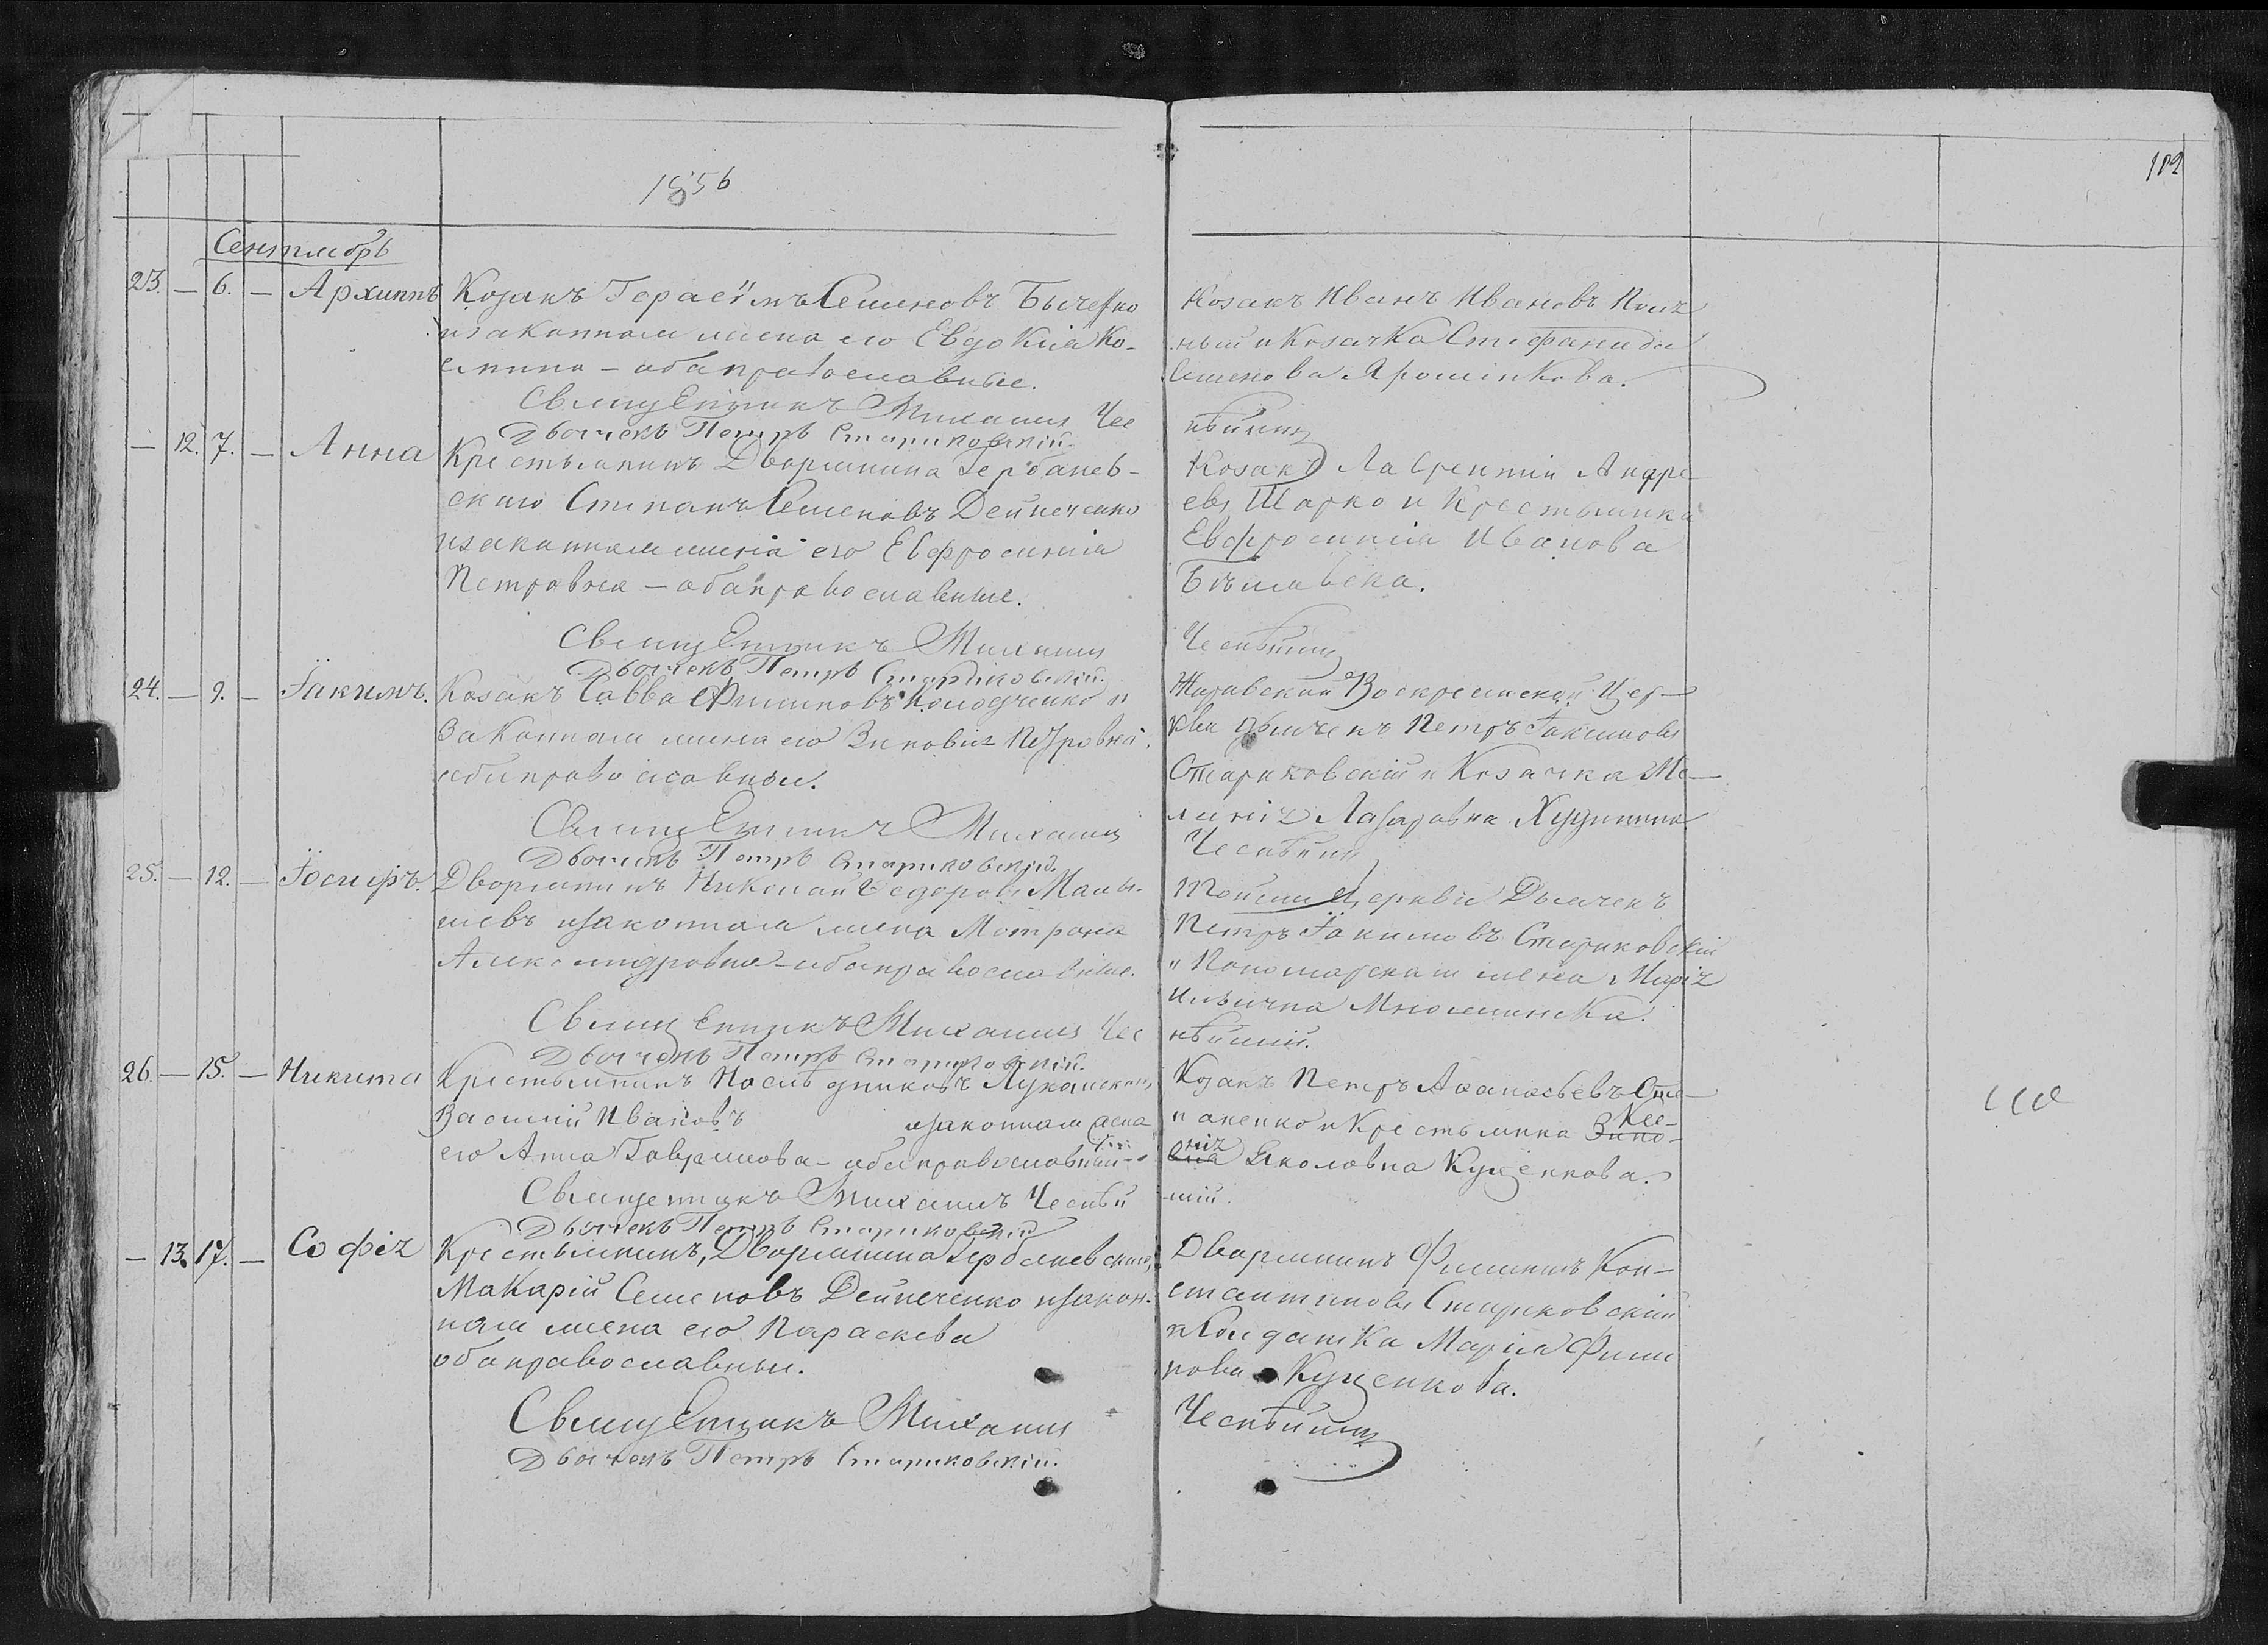 1856
102
Сентябрь
23. — 6. — Архиппъ
Козакъ Герасимъ Семеновъ Бычетко
и законная жена его Евдокія Ко-
смина — оба православные.
Священникъ Михаилъ Чес
Дьячекъ Петръ Стариковскій.
Козакъ Иванъ Ивановъ
и Козачка Стефанида
Семенова Ярошенкова.
нѣйшій
— 12. 7. — Анна
Крестьянинъ Дворянина Гербанев-
скаго Степанъ Семеновъ Дейнеченко
и законная жена его Евфросинія
Петровна — оба православные.
Священникъ Михаилъ
Дьячекъ Петръ Стариковскій.
Козакъ Лаврентій Андре-
евъ Шарко и Крестьянка
Евфросинія Иванова
Чеснѣйшій
24. — 9. — Іакимъ.
Козакъ Савва Филиповъ Колодченко и
законная жена его Зиновія Петровна,
оба православные.
Священникъ Михаилъ
Дьячекъ Петръ Стариковскій.
Журавской Воскресенской Цер—
кви Дьячекъ Петръ Іакимовъ
Стариковскій и Козачка Ме—
ланія Лазаровна
Чеснѣйшій
25. — 12. — Іосифъ.
Дворянинъ Николай Федоровъ Малы-
шевъ и законная жена Мотрона
Александровна — оба православные.
Священникъ Михаилъ Чес
Дьячекъ Петръ Стариковскій.
Тойже Церкви Дьячекъ
Петръ Іакимовъ Стариковскій
и Пономарская жена Марія
Ильична
нѣйшій.
26. — 15. — Никита
Крестьянинъ Наслѣдниковъ
Василій Ивановъ и законная жена
его Анна Гавриилова — оба православныи
Священникъ Михаилъ Чеснѣй
Дьячекъ Петръ Стариковскій
Козакъ Петръ Аѳанасьевъ Сте—
паненко и Крестьянка Зино- Ксе-
віа нія Яковлевна Куценкова.
шій.
— 13. 17. — Софія
Крестьянинъ, Дворянина Гербаневскаго,
Макарій Семеновъ Дейнеченко и закон-
ная жена его Параскева
оба православныи.
Священникъ Михаилъ
Дьячекъ Петръ Стариковскій.
Дворянинъ Филиппъ Кон—
стантиновъ Стариковскій
и Солдатка Марія Фили
пова Куценкова.
Чеснѣйшій